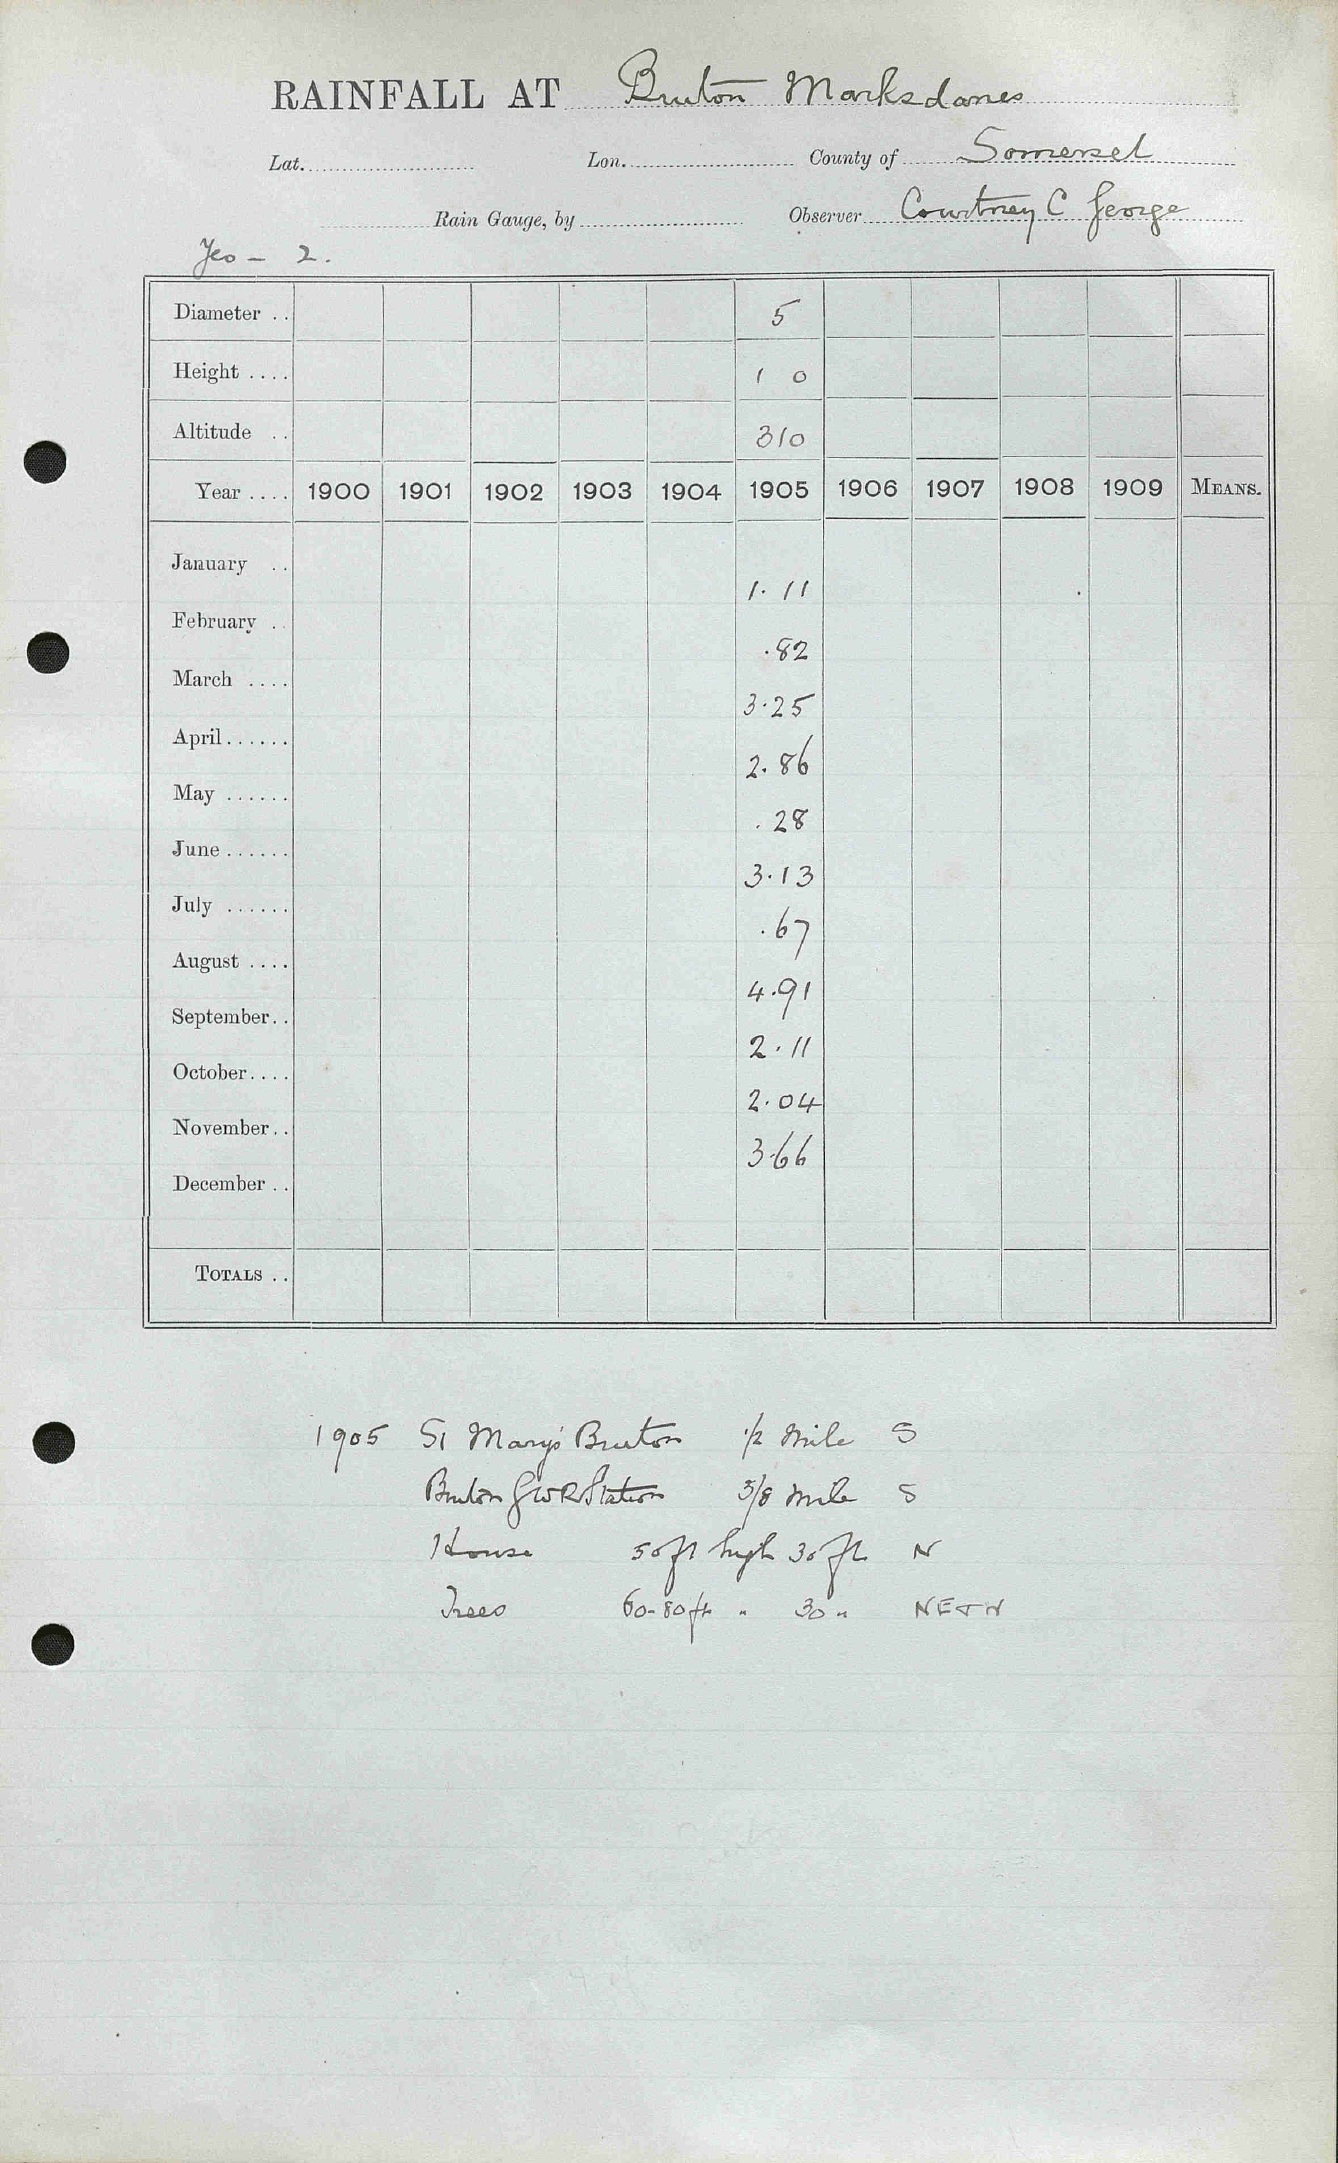 RAINFALL AT Bruton Marksdanes
Lat. Lon. County of Somerset
Rain Gauge, by Observer Courtney C George
Yeo - 2.
Diameter .. 5
Height .... 1 0
Altitude .. 310
Year .... 1900 1901 1902 1903 1904 1905 1906 1907 1908 1909 MEANS.
January ..
1.11
February ..
.82
March ....
3.25
April......
2.86
May ......
.28
June ......
3.13
July ......
.67
August ....
4.91
September..
2.11
October....
2.04
November..
3.66
December ..
TOTALS ..
1905 St Mary's Bruton 1/2 Mile S
Bruton GWR Station 3/8 Mile S
House 50ft high 30ft N
Trees 60-80ft " 30 " NE+N